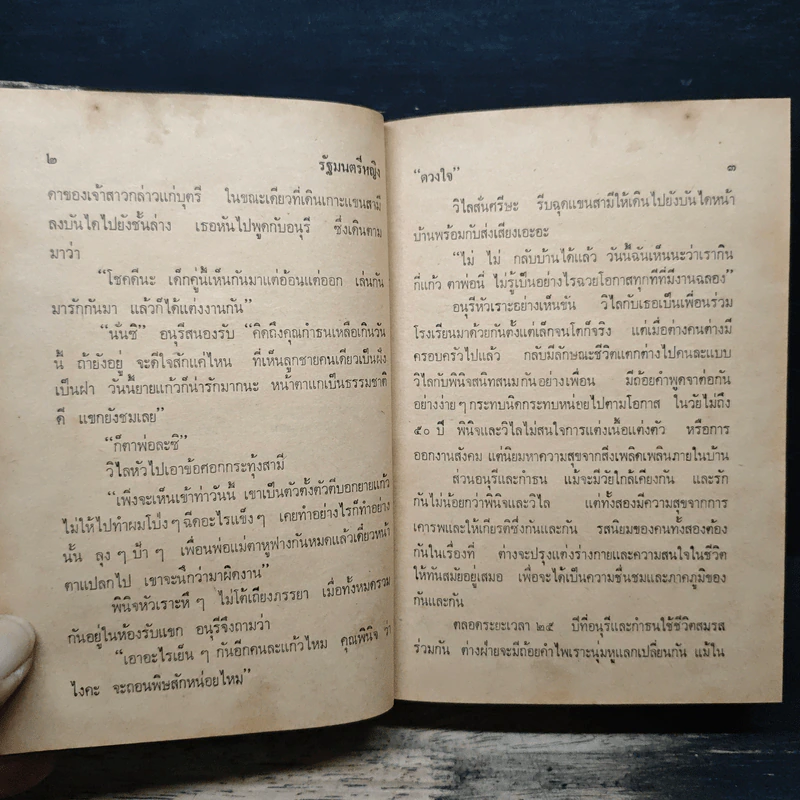 ๒ รัฐมนตรีหญิง
ตาของเจ้าสาวกล่าวแก่บุตรี ในขณะเดียวที่เดินเกาะแขนสามี
ลงบันไดไปยังชั้นล่าง เธอหันไปพูดกับอนุรี ซึ่งเดินตาม
มาว่า
“โชคดีนะ เด็กคู่นี้เห็นกันมาแต่อ้อนแต่ออก เล่นกัน
มารักกันมา แล้วก็ได้แต่งงานกัน”
“นั่นซิ” อนุรีสนองรับ “คิดถึงคุณกำธนเหลือเกินวัน
นี้ ถ้ายังอยู่ จะดีใจสักแค่ไหน ที่เห็นลูกชายคนเดียวเป็นฝั่ง
เป็นฝา วันนี้ยายแก้วก็น่ารักมากนะ หน้าตาแกเป็นธรรมชาติ
ดี แขกยังชมเลย”
“ก็ตาพ่อละซิ”
วิไลหัวไปเอาข้อศอกกระทุ้งสามี
“เพิ่งจะเห็นเข้าท่าวันนี้ เขาเป็นตัวตั้งตัวตีบอกยายแก้ว
ไม่ให้ไปทำผมโป่งๆ ฉีดอะไรแข็งๆ เคยทำอย่างไรก็ทำอย่าง
นั้น ลุงๆ ป้าๆ เพื่อนพ่อแม่ตาหูฟางกันหมดแล้วเดี๋ยวหน้า
ตาแปลกไป เขาจะนึกว่ามาผิดงาน”
พินิจหัวเราะหึๆ ไม่โต้เถียงภรรยา เมื่อทั้งหมดรวม
กันอยู่ในห้องรับแขก อนุรีจึงถามว่า
“เอาอะไรเย็นๆ กันอีกคนละแก้วไหม คุณพินิจ ว่า
ไงคะ จะถอนพิษสักหน่อยไหม”
“ดวงใจ” ๓
วิไลสั่นศรีษะ รีบฉุดแขนสามีให้เดินไปยังบันไดหน้า
บ้านพร้อมกับส่งเสียงเอะอะ
“ไม่ ไม่ กลับบ้านได้แล้ว วันนี้ฉันเห็นนะว่าเรากิน
กี่แก้ว ตาพ่อนี่ ไม่รู้เป็นอย่างไรฉวยโอกาสทุกทีที่มีงานฉลอง”
อนุรีหัวเราะอย่างเห็นขัน วิไลกับเธอเป็นเพื่อนร่วม
โรงเรียนมาด้วยกันตั้งแต่เล็กจนโตก็จริง แต่เมื่อต่างคนต่างมี
ครอบครัวไปแล้ว กลับมีลักษณะชีวิตแตกต่างไปคนละแบบ
วิไลกับพินิจสนิทสนมกันอย่างเพื่อน มีถ้อยคำพูดจาต่อกัน
อย่างง่ายๆ กระทบนิดกระทบหน่อยไปตามโอกาส ในวัยไม่ถึง
๕๐ ปี พินิจและวิไลไม่สนใจการแต่งเนื้อแต่งตัว หรือการ
ออกงานสังคม แต่นิยมหาความสุขจากสิ่งเพลิดเพลินภายในบ้าน
ส่วนอนุรีและกำธน แม้จะมีวัยใกล้เคียงกัน และรัก
กันไม่น้อยกว่าพินิจและวิไล แต่ทั้งสองมีความสุขจากการ
เคารพและให้เกียรติซึ่งกันและกัน รสนิยมของคนทั้งสองต้อง
กันในเรื่องที่ ต่างจะปรุงแต่งร่างกายและความสนใจในชีวิต
ให้ทันสมัยอยู่เสมอ เพื่อจะได้เป็นความชื่นชมและภาคภูมิของ
กันและกัน
ตลอดระยะเวลา ๒๕ ปีที่อนุรีและกำธนใช้ชีวิตสมรส
ร่วมกัน ต่างฝ่ายจะมีถ้อยคำไพเราะนุ่มหูแลกเปลี่ยนกัน แม้ใน